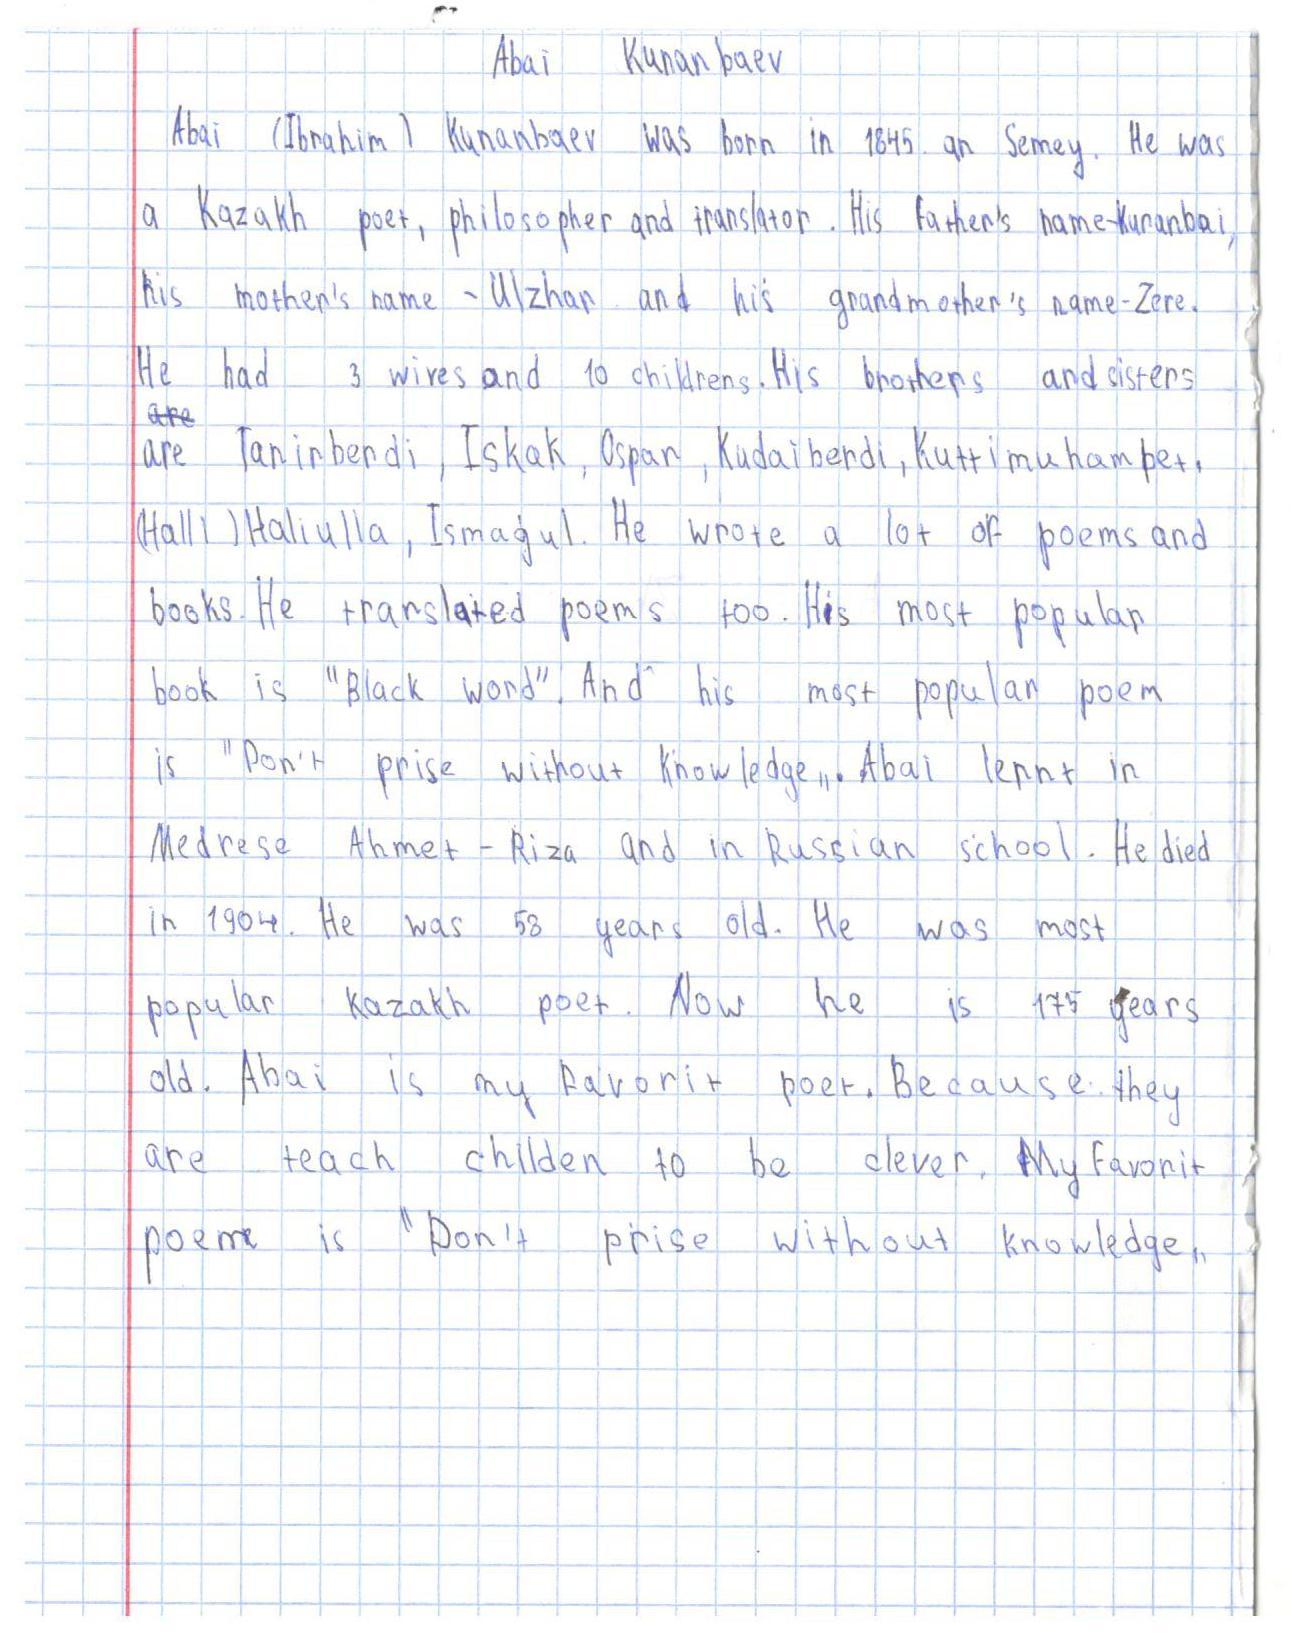 Abai Kunanbaev
Abai (Ibrahim) Kunanbaev was born in 1845. an Semey. He was
a Kazakh poet, philosopher and translator. His father's name-Kunanbai,
his mother's name - Ulzhan and his grandmother's name-Zere.
He had 3 wives and 10 childrens. His brothers and sisters
are
are Tanirberdi, Iskak, Ospan, Kudaiberdi, Kuttimuhambet,
(Halli) Haliulla, Ismagul. He wrote a lot of poems and
books. He translated poems too. His most popular
book is "Black word". And his most popular poem
is "Don't prise without knowledge„. Abai lernt in
Medrese Ahmet - Riza and in Russian school. He died
in 1904. He was 58 years old. He was most
popular Kazakh poet. Now he is 175 years
old. Abai is my favorit poet. Because they
are teach childen to be clever. My favorit
poem is "Don't prise without knowledge„